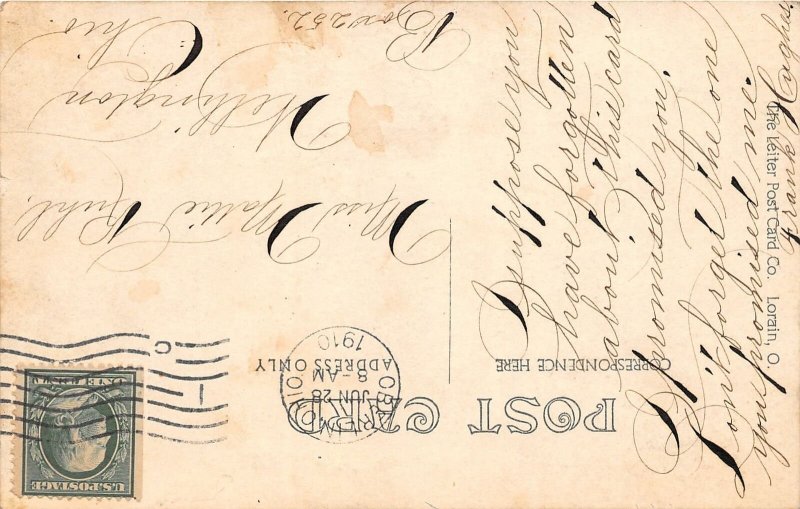 POST CARD
CORRESPONDENCE HERE
ADDRESS ONLY
I suppose you
have forgotten
about this card
I promised you.
Don't forget the one
you promised me.
Frank
The Leiter Post Card Co. Lorain, O.
JUN 28
8-AM
1910
OHIO
U.S. POSTAGE
Miss Mattie Ruhl.
Wellington
Ohio.
Box 252.